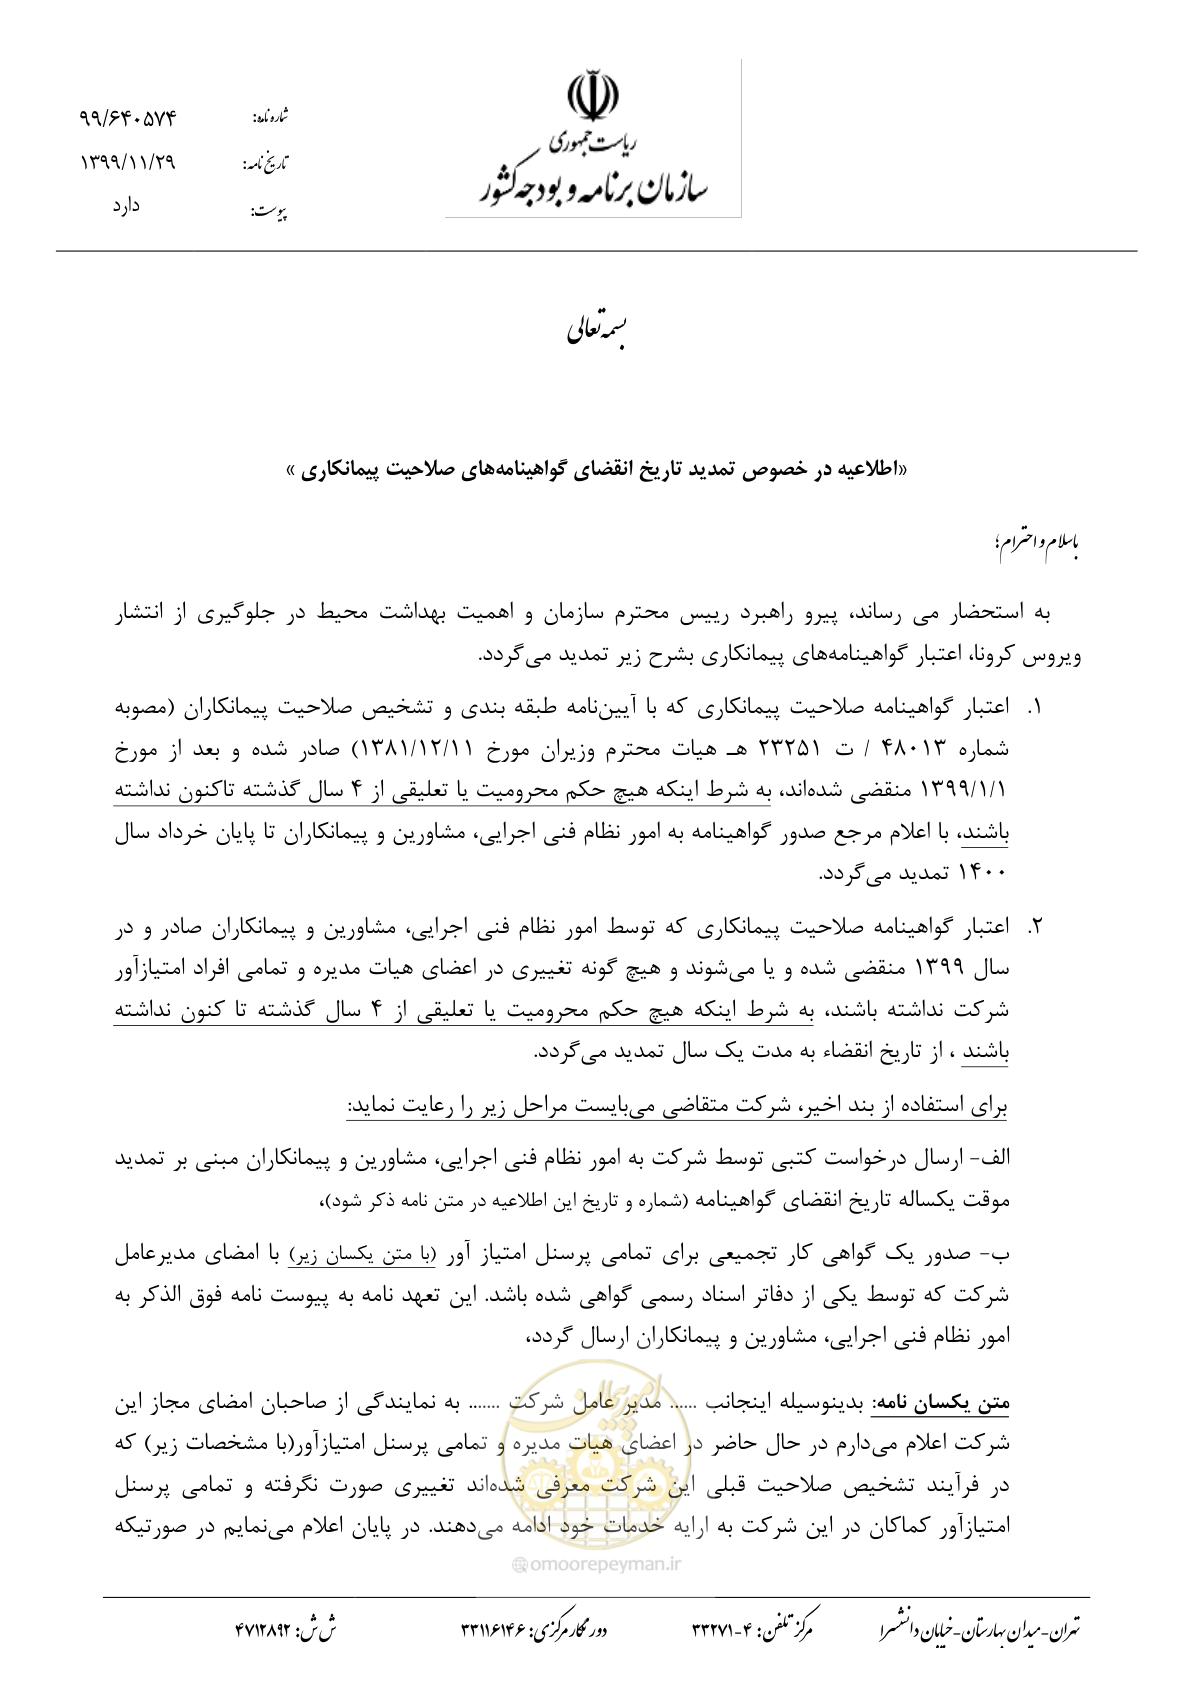 ریاست جمهوری
سازمان برنامه و بودجه کشور
شماره نامه: ۹۹/۶۴۰۵۷۴
تاریخ نامه: ۱۳۹۹/۱۱/۲۹
پیوست: دارد
بسمه تعالی
«اطلاعیه در خصوص تمدید تاریخ انقضای گواهینامه‌های صلاحیت پیمانکاری »
باسلام و احترام؛
به استحضار می رساند، پیرو راهبرد رییس محترم سازمان و اهمیت بهداشت محیط در جلوگیری از انتشار
ویروس کرونا، اعتبار گواهینامه‌های پیمانکاری بشرح زیر تمدید می‌گردد.
۱. اعتبار گواهینامه صلاحیت پیمانکاری که با آیین‌نامه طبقه بندی و تشخیص صلاحیت پیمانکاران (مصوبه
شماره ۴۸۰۱۳ / ت ۲۳۲۵۱ هـ هیات محترم وزیران مورخ ۱۳۸۱/۱۲/۱۱) صادر شده و بعد از مورخ
۱۳۹۹/۱/۱ منقضی شده‌اند، به شرط اینکه هیچ حکم محرومیت یا تعلیقی از ۴ سال گذشته تاکنون نداشته
باشند، با اعلام مرجع صدور گواهینامه به امور نظام فنی اجرایی، مشاورین و پیمانکاران تا پایان خرداد سال
۱۴۰۰ تمدید می‌گردد.
۲. اعتبار گواهینامه صلاحیت پیمانکاری که توسط امور نظام فنی اجرایی، مشاورین و پیمانکاران صادر و در
سال ۱۳۹۹ منقضی شده و یا می‌شوند و هیچ گونه تغییری در اعضای هیات مدیره و تمامی افراد امتیازآور
شرکت نداشته باشند، به شرط اینکه هیچ حکم محرومیت یا تعلیقی از ۴ سال گذشته تا کنون نداشته
باشند ، از تاریخ انقضاء به مدت یک سال تمدید می‌گردد.
برای استفاده از بند اخیر، شرکت متقاضی می‌بایست مراحل زیر را رعایت نماید:
الف- ارسال درخواست کتبی توسط شرکت به امور نظام فنی اجرایی، مشاورین و پیمانکاران مبنی بر تمدید
موقت یکساله تاریخ انقضای گواهینامه (شماره و تاریخ این اطلاعیه در متن نامه ذکر شود)،
ب- صدور یک گواهی کار تجمیعی برای تمامی پرسنل امتیاز آور (با متن یکسان زیر) با امضای مدیرعامل
شرکت که توسط یکی از دفاتر اسناد رسمی گواهی شده باشد. این تعهد نامه به پیوست نامه فوق الذکر به
امور نظام فنی اجرایی، مشاورین و پیمانکاران ارسال گردد،
متن یکسان نامه: بدینوسیله اینجانب ...... مدیر عامل شرکت ....... به نمایندگی از صاحبان امضای مجاز این
شرکت اعلام می‌دارم در حال حاضر در اعضای هیات مدیره و تمامی پرسنل امتیازآور(با مشخصات زیر) که
در فرآیند تشخیص صلاحیت قبلی این شرکت معرفی شده‌اند تغییری صورت نگرفته و تمامی پرسنل
امتیازآور کماکان در این شرکت به ارایه خدمات خود ادامه می‌دهند. در پایان اعلام می‌نمایم در صورتیکه
امور پیمان
omoorepeyman.ir
تهران-میدان بهارستان-خیابان دانشسرا مرکز تلفن: ۴-۳۳۲۷۱ دورنگار مرکزی: ۳۳۱۱۶۱۴۶ ش ش: ۴۷۱۲۸۹۲